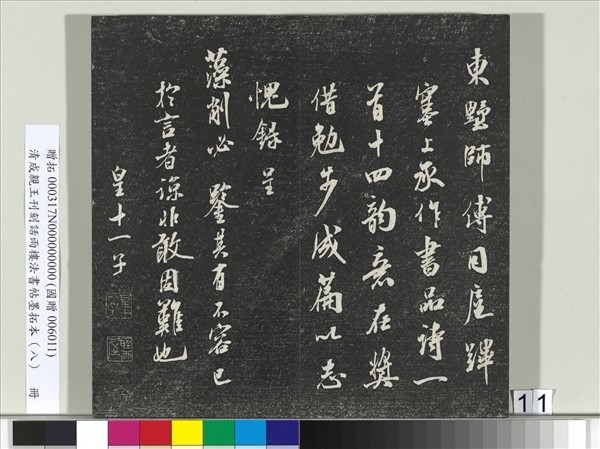 東墅師傅同扈蹕
塞上承作書品詩一
首十四韵意在獎
借勉步成篇以志
愧錄呈
藻削必鑒其有不容已
於言者諒非敢因難也
皇十一子
贈拓 000317N000000000 (國贈 006011)
清成親王刊刻話雨樓法書帖墨拓本（八） 冊
11